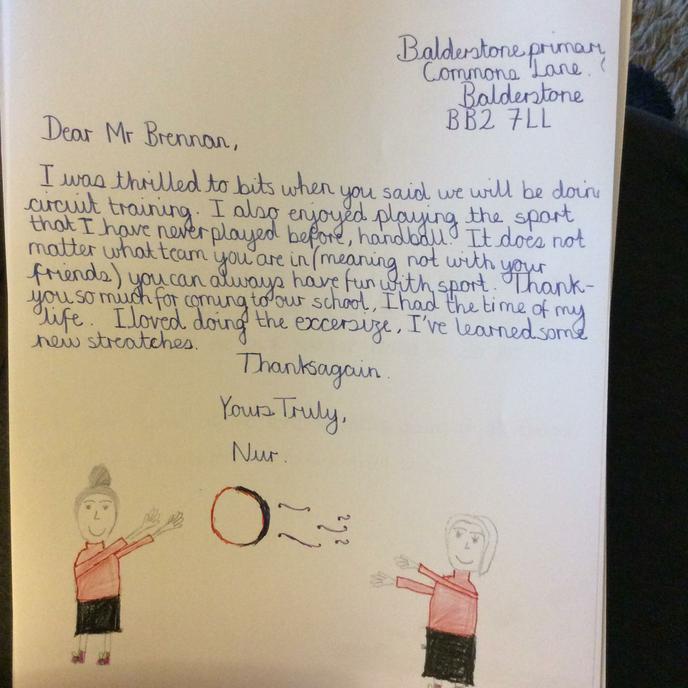 Balderstone primary
Commons Lane.
Balderstone
BB2 7LL
Dear Mr Brennan,
I was thrilled to bits when you said we will be doin
circuit training. I also enjoyed playing the sport
that I have never played before, handball. It does not
matter what team you are in (meaning not with your
friends) you can always have fun with sport. Thank-
you so much for coming to our school, I had the time of my
life. I loved doing the excersize, I've learned some
new streatches.
Thanks again.
Yours Truly,
Nur.